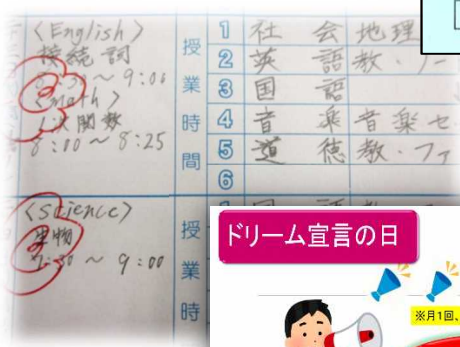 <English>
接続詞
8:30～9:00
<Math>
1次関数
8:00～8:25
授業時間
1 社会 地理
2 英語 教・ノー
3 国語
4 音楽 音楽セ
5 道徳 教・ファ
6
<Science>
生物
～9:00
授業時
ドリーム宣言の日
※月1回、